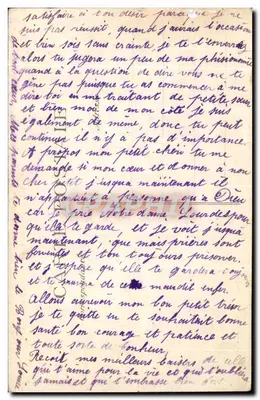 satisfaire à ton desir je ne
suis pas reussit, quand j'aurais l'occasion
et bien sois sans crainte je te l'enverai
alors tu jugera un peu de ma phisionomie
quand à la question de dire vous ne te
gène pas puisque tu as commencer à me
dire toi me traitant de petite sœur
et bien moi de mon côté je suis
également de meme, donc tu peut
continuer il n'y à pas d'importance.
A propos mon petit cheri tu me
demande si mon cœur et donner à non
cher petit jusqua maintenant il
n'appartiens qu'a Dieu
car Notre Dame Lourdes pour
qu'elle te garde, et je voit jusqua
maintenant, que mais prières sont
et ton toujours prisonier.
et j'espère qu'elle te gardera toujours
et te sauvra de ce maudit enfer.
Allons aurevoir mon bon petit trésor
je te quitte en te souhaitent bonne
santé bon courage et patience et
toute sorte de bonheur.
Reçoit mes meilleurs baisers de elle
qui t'aime pour la vie et qui t'oubliera
jamais et qui t'embrasse bien fort.